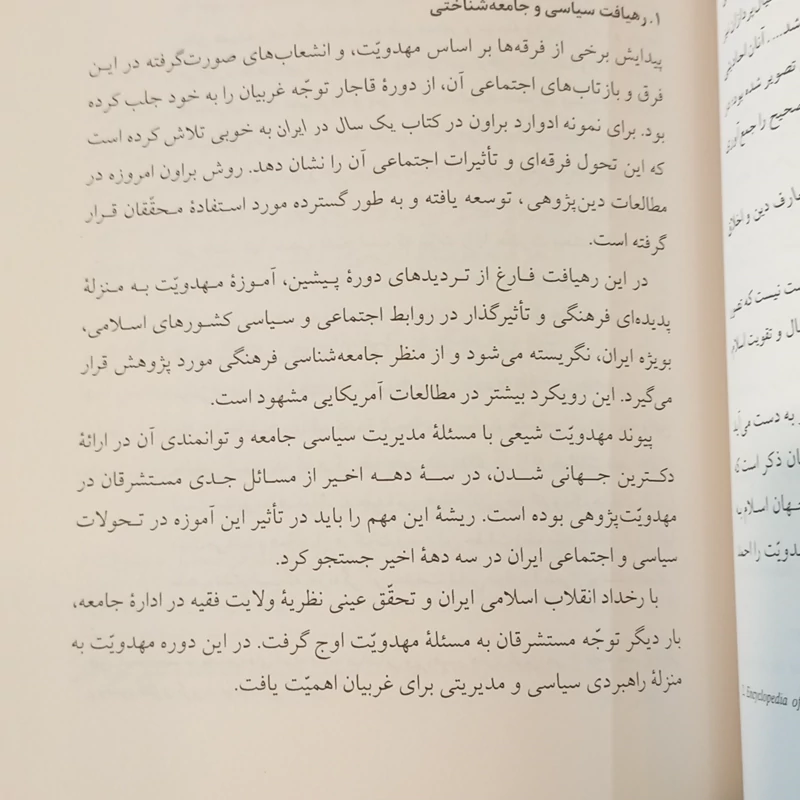 ۱. رهیافت سیاسی و جامعه‌شناختی
پیدایش برخی از فرقه‌ها بر اساس مهدویّت، و انشعاب‌های صورت‌گرفته در این
فرق و بازتاب‌های اجتماعی آن، از دورهٔ قاجار توجّه غربیان را به خود جلب کرده
بود. برای نمونه ادوارد براون در کتاب یک سال در ایران به خوبی تلاش کرده است
که این تحول فرقه‌ای و تأثیرات اجتماعی آن را نشان دهد. روش براون امروزه در
مطالعات دین‌پژوهی، توسعه یافته و به طور گسترده مورد استفادهٔ محقّقان قرار
گرفته است.
در این رهیافت فارغ از تردیدهای دورهٔ پیشین، آموزهٔ مهدویّت به منزلهٔ
پدیده‌ای فرهنگی و تأثیرگذار در روابط اجتماعی و سیاسی کشورهای اسلامی،
بویژه ایران، نگریسته می‌شود و از منظر جامعه‌شناسی فرهنگی مورد پژوهش قرار
می‌گیرد. این رویکرد بیشتر در مطالعات آمریکایی مشهود است.
پیوند مهدویّت شیعی با مسئلهٔ مدیریت سیاسی جامعه و توانمندی آن در ارائهٔ
دکترین جهانی شدن، در سه دهه اخیر از مسائل جدی مستشرقان در
مهدویّت‌پژوهی بوده است. ریشهٔ این مهم را باید در تأثیر این آموزه در تحولات
سیاسی و اجتماعی ایران در سه دههٔ اخیر جستجو کرد.
با رخداد انقلاب اسلامی ایران و تحقّق عینی نظریهٔ ولایت فقیه در ادارهٔ جامعه،
بار دیگر توجّه مستشرقان به مسئلهٔ مهدویّت اوج گرفت. در این دوره مهدویّت به
منزلهٔ راهبردی سیاسی و مدیریتی برای غربیان اهمیّت یافت.
تصویر شده بود
صحیح را جمع‌آوری
عارف دین و اخلاق
ست نیست که
ال و تقویت اسلام
به دست می‌آید
ان ذکر است که
جهان اسلام
دویّت را
2. Encyclopedia of